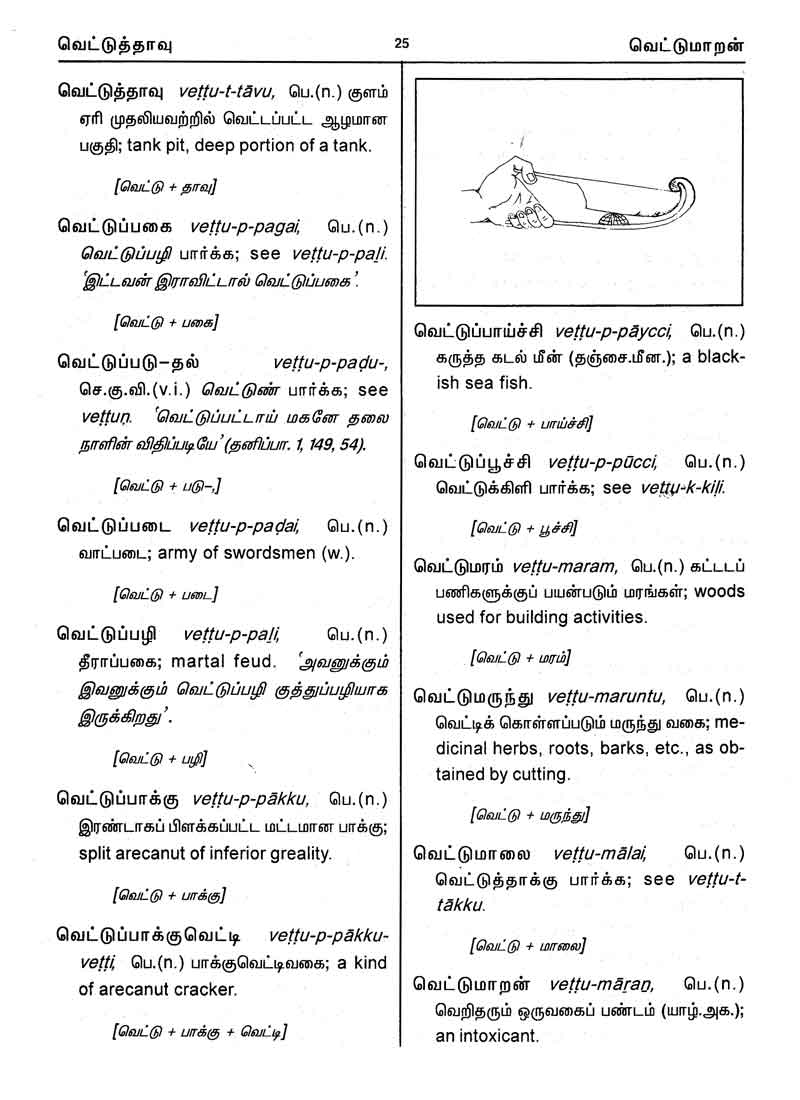 வெட்டுத்தாவு
25
வெட்டுமாறன்
வெட்டுத்தாவு veṭṭu-t-tāvu, பெ.(n.) குளம்
ஏரி முதலியவற்றில் வெட்டப்பட்ட ஆழமான
பகுதி; tank pit, deep portion of a tank.
[வெட்டு + தாவு]
வெட்டுப்பகை veṭṭu-p-pagai, பெ.(n.)
வெட்டுப்பழி பார்க்க; see veṭṭu-p-paḻi.
'இட்டவன் இராவிட்டால் வெட்டுப்பகை'.
[வெட்டு + பகை]
வெட்டுப்படு-தல் veṭṭu-p-paḍu-,
செ.கு.வி.(v.i.) வெட்டுண் பார்க்க; see
veṭṭuṇ. 'வெட்டுப்பட்டாய் மகனே தலை
நாளின் விதிப்படியே' (தனிப்பா. 1, 149, 54).
[வெட்டு + படு-,]
வெட்டுப்படை veṭṭu-p-paḍai, பெ.(n.)
வாட்படை; army of swordsmen (w.).
[வெட்டு + படை]
வெட்டுப்பழி veṭṭu-p-paḻi, பெ.(n.)
தீராப்பகை; martal feud. 'அவனுக்கும்
இவனுக்கும் வெட்டுப்பழி குத்துப்பழியாக
இருக்கிறது'.
[வெட்டு + பழி]
வெட்டுப்பாக்கு veṭṭu-p-pākku, பெ.(n.)
இரண்டாகப் பிளக்கப்பட்ட மட்டமான பாக்கு;
split arecanut of inferior greality.
[வெட்டு + பாக்கு]
வெட்டுப்பாக்குவெட்டி veṭṭu-p-pākku-
veṭṭi, பெ.(n.) பாக்குவெட்டிவகை; a kind
of arecanut cracker.
[வெட்டு + பாக்கு + வெட்டி]
வெட்டுப்பாய்ச்சி veṭṭu-p-pāycci, பெ.(n.)
கருத்த கடல் மீன் (தஞ்சை.மீன.); a black-
ish sea fish.
[வெட்டு + பாய்ச்சி]
வெட்டுப்பூச்சி veṭṭu-p-pūcci, பெ.(n.)
வெட்டுக்கிளி பார்க்க; see veṭṭu-k-kiḷi.
[வெட்டு + பூச்சி]
வெட்டுமரம் veṭṭu-maram, பெ.(n.) கட்டடப்
பணிகளுக்குப் பயன்படும் மரங்கள்; woods
used for building activities.
[வெட்டு + மரம்]
வெட்டுமருந்து veṭṭu-maruntu, பெ.(n.)
வெட்டிக் கொள்ளப்படும் மருந்து வகை; me-
dicinal herbs, roots, barks, etc., as ob-
tained by cutting.
[வெட்டு + மருந்து]
வெட்டுமாலை veṭṭu-mālai, பெ.(n.)
வெட்டுத்தாக்கு பார்க்க; see veṭṭu-t-
tākku.
[வெட்டு + மாலை]
வெட்டுமாறன் veṭṭu-māṟaṉ, பெ.(n.)
வெறிதரும் ஒருவகைப் பண்டம் (யாழ்.அக.);
an intoxicant.